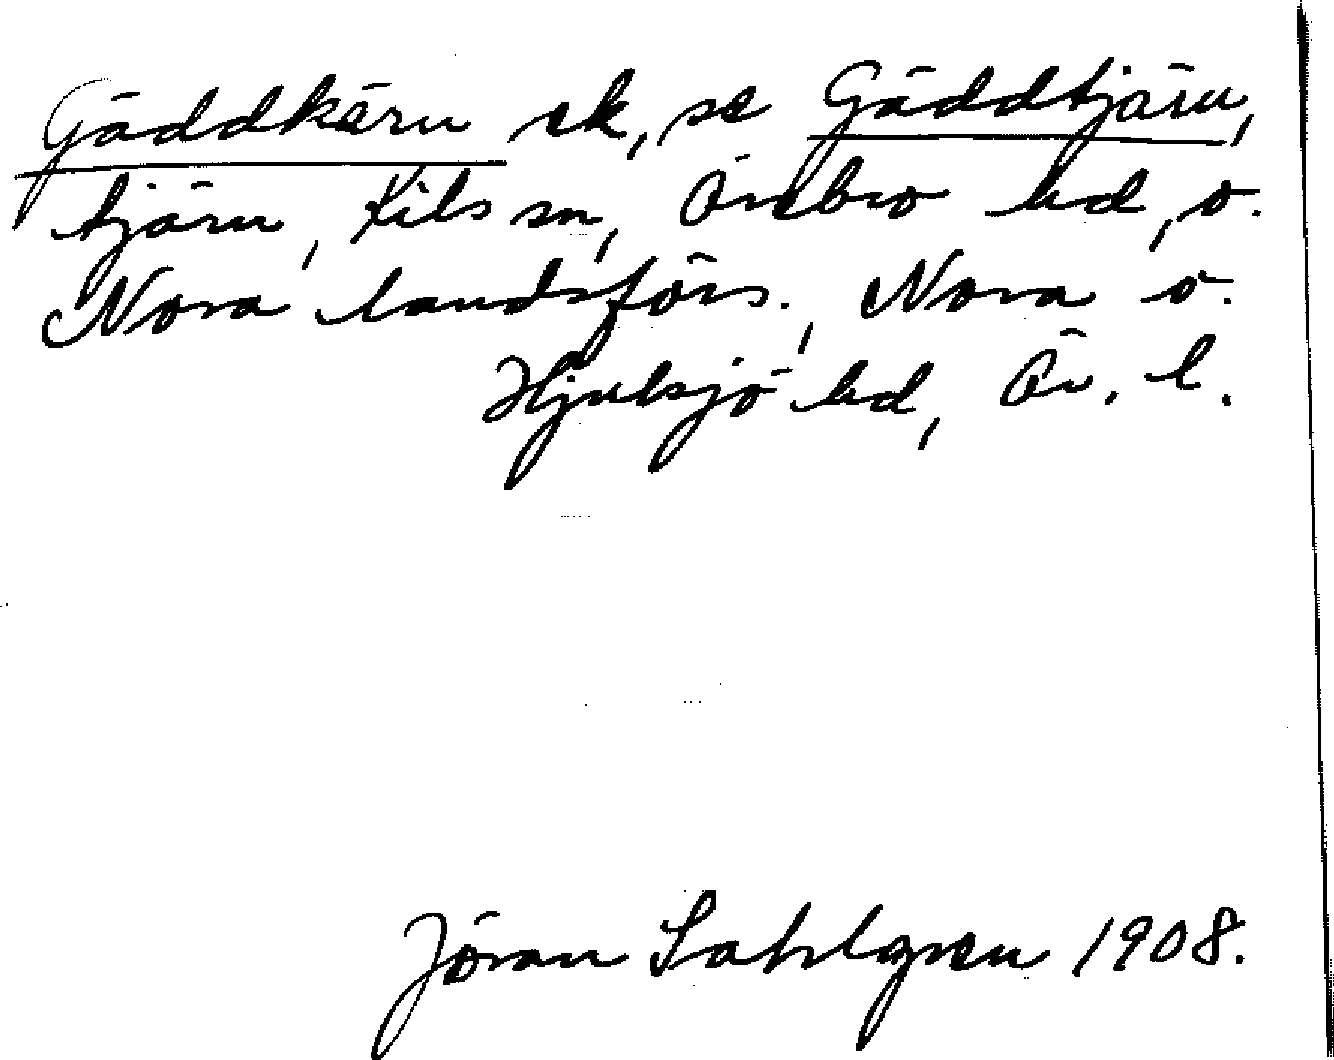 Gäddkärn ek, se Gäddtjärn,
tjärn, Kils sn, Örebro hd, o.
Nora landsförs., Nora o.
Hjulsjö hd, Ör. l.
Jöran Sahlgren 1908.